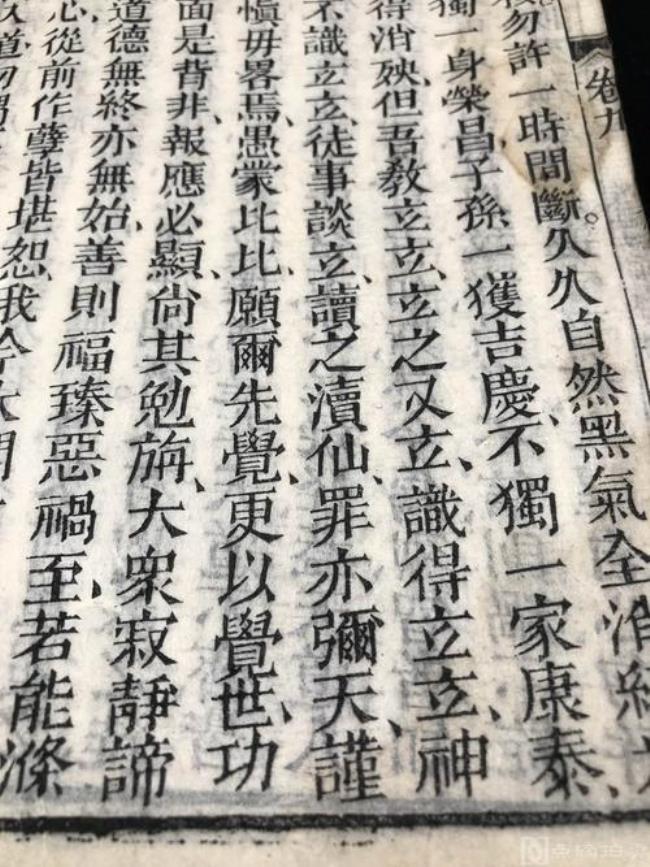 卷九
勿許一時間斷。久久自然黑氣全消
獨一身榮昌、子孫一獲吉慶、不獨一家康泰、
得消殃、但吾教玄玄、玄之又玄、識得玄玄、神
不識玄玄、徒事談玄、讀之瀆仙、罪亦彌天、謹
愼毋畧焉、愚蒙比比、願爾先覺、更以覺世、功
面是背非、報應必顯、尙其勉旃、大衆寂靜諦
道德無終亦無始、善則福臻惡禍至、若能滌
心從前作孽皆堪恕、我今大開